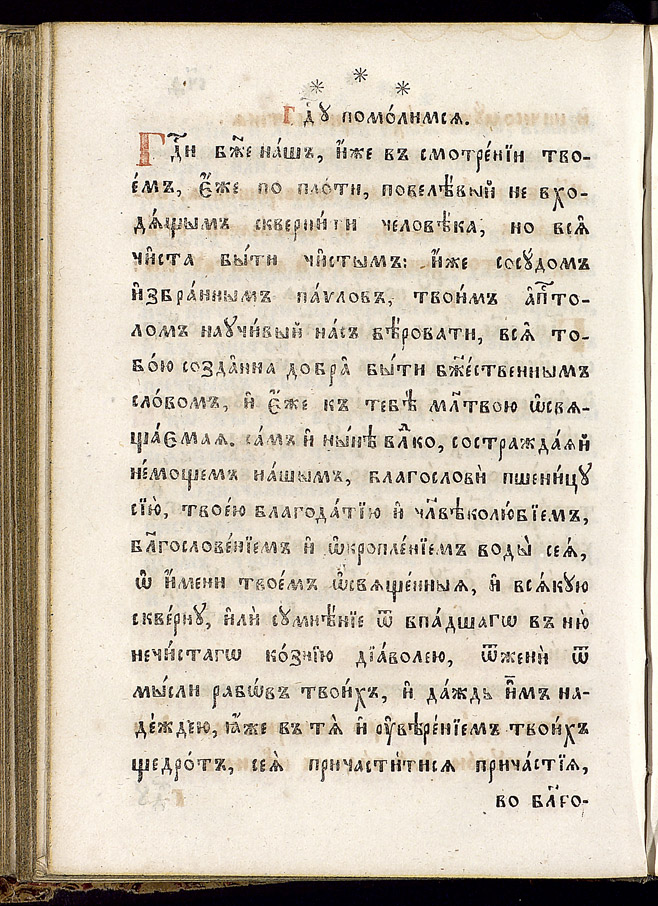 * * *
Гдⷭ҇у помо́лимсѧ.
Гдⷭ҇и бж҃е на́шъ, и҆́же въ смотре́нїи тво-
е́мъ, є҆́же по пло́ти, повелѣ́вый не вхо-
дѧ́щымъ скверни́ти человѣ́ка, но всѧ̀
чи̑ста бы́ти чи̑стымъ: и҆́же сосꙋдомъ
и҆збра́ннымъ па́ѵловъ, твои́мъ а҆пⷭ҇то-
ломъ наꙋчи́вый на́съ вѣ́ровати, всѧ̑ то-
бо́ю созда̑нна добра̑ бы́ти бжⷭ҇е́ственнымъ
сло́вомъ, и҆ є҆́же къ тебѣ̀ млт҃вою ѡ҆свѧ-
ща́ємая. са́мъ и҆ ны́нѣ влⷣко, состражда́ѧй
не́мощемъ на́шымъ, благословѝ пшени́цꙋ
сїю̀, твое́ю благода́тїю и҆ чл҃вѣколю́бїемъ,
бл҃гослове́нїемъ и҆ ѡ҆кропле́нїемъ воды̀ сеѧ̀,
ѡ҆ и҆́мени твое́мъ ѡ҆свѧще́нныѧ, и҆ всѧ́кꙋю
скве́рнꙋ, и҆лѝ сꙋмнѣ́нїе ѿ впа́дшагѡ въ ню̀
нечи́стагѡ ко́знїю дїа́волею, ѿженѝ ѿ
мы́сли рабѡ́въ твои́хъ, и҆ да́ждь и҆̀мъ на-
де́ждею, ꙗ҆́же въ тѧ̀ и҆ ᲂу҆вѣре́нїемъ твои́хъ
щедро́тъ, сеѧ̀ причасти́тисѧ прича́стїѧ,
во бл҃го-